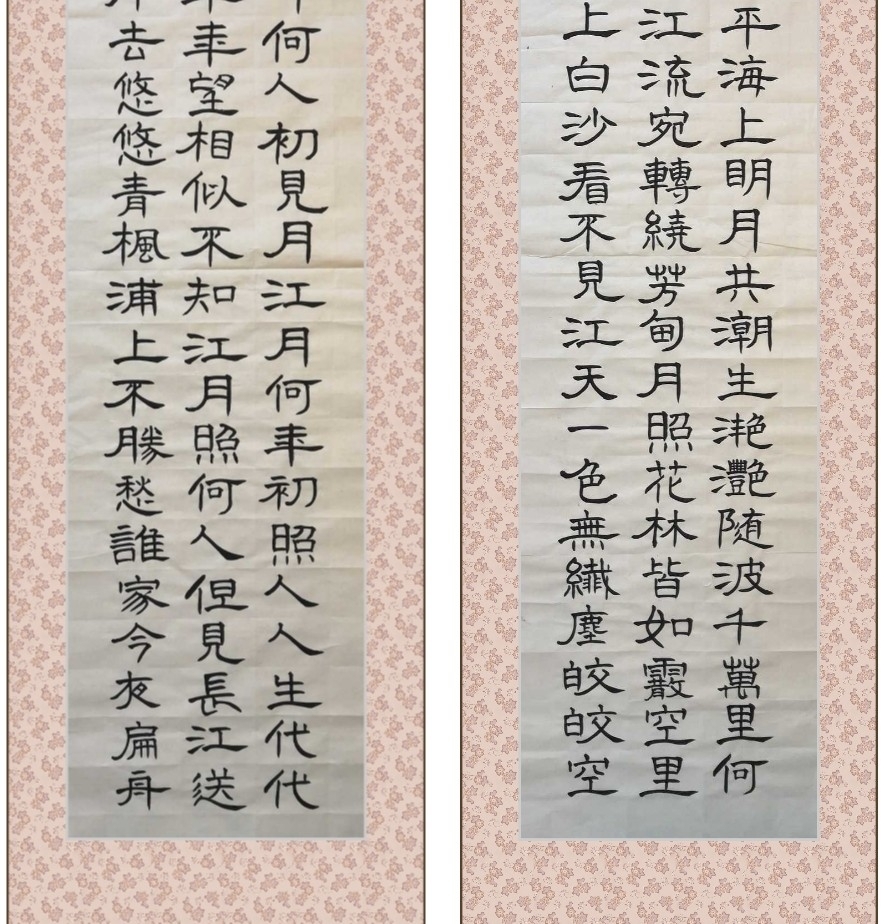 平海上明月共潮生滟灩随波千萬里何
江流宛轉繞芳甸月照花林皆如霰空里
上白沙看不見江天一色無纖塵皎皎空
何人初見月江月何年初照人人生代代
年望相似不知江月照何人但見長江送
去悠悠青楓浦上不勝愁誰家今夜扁舟